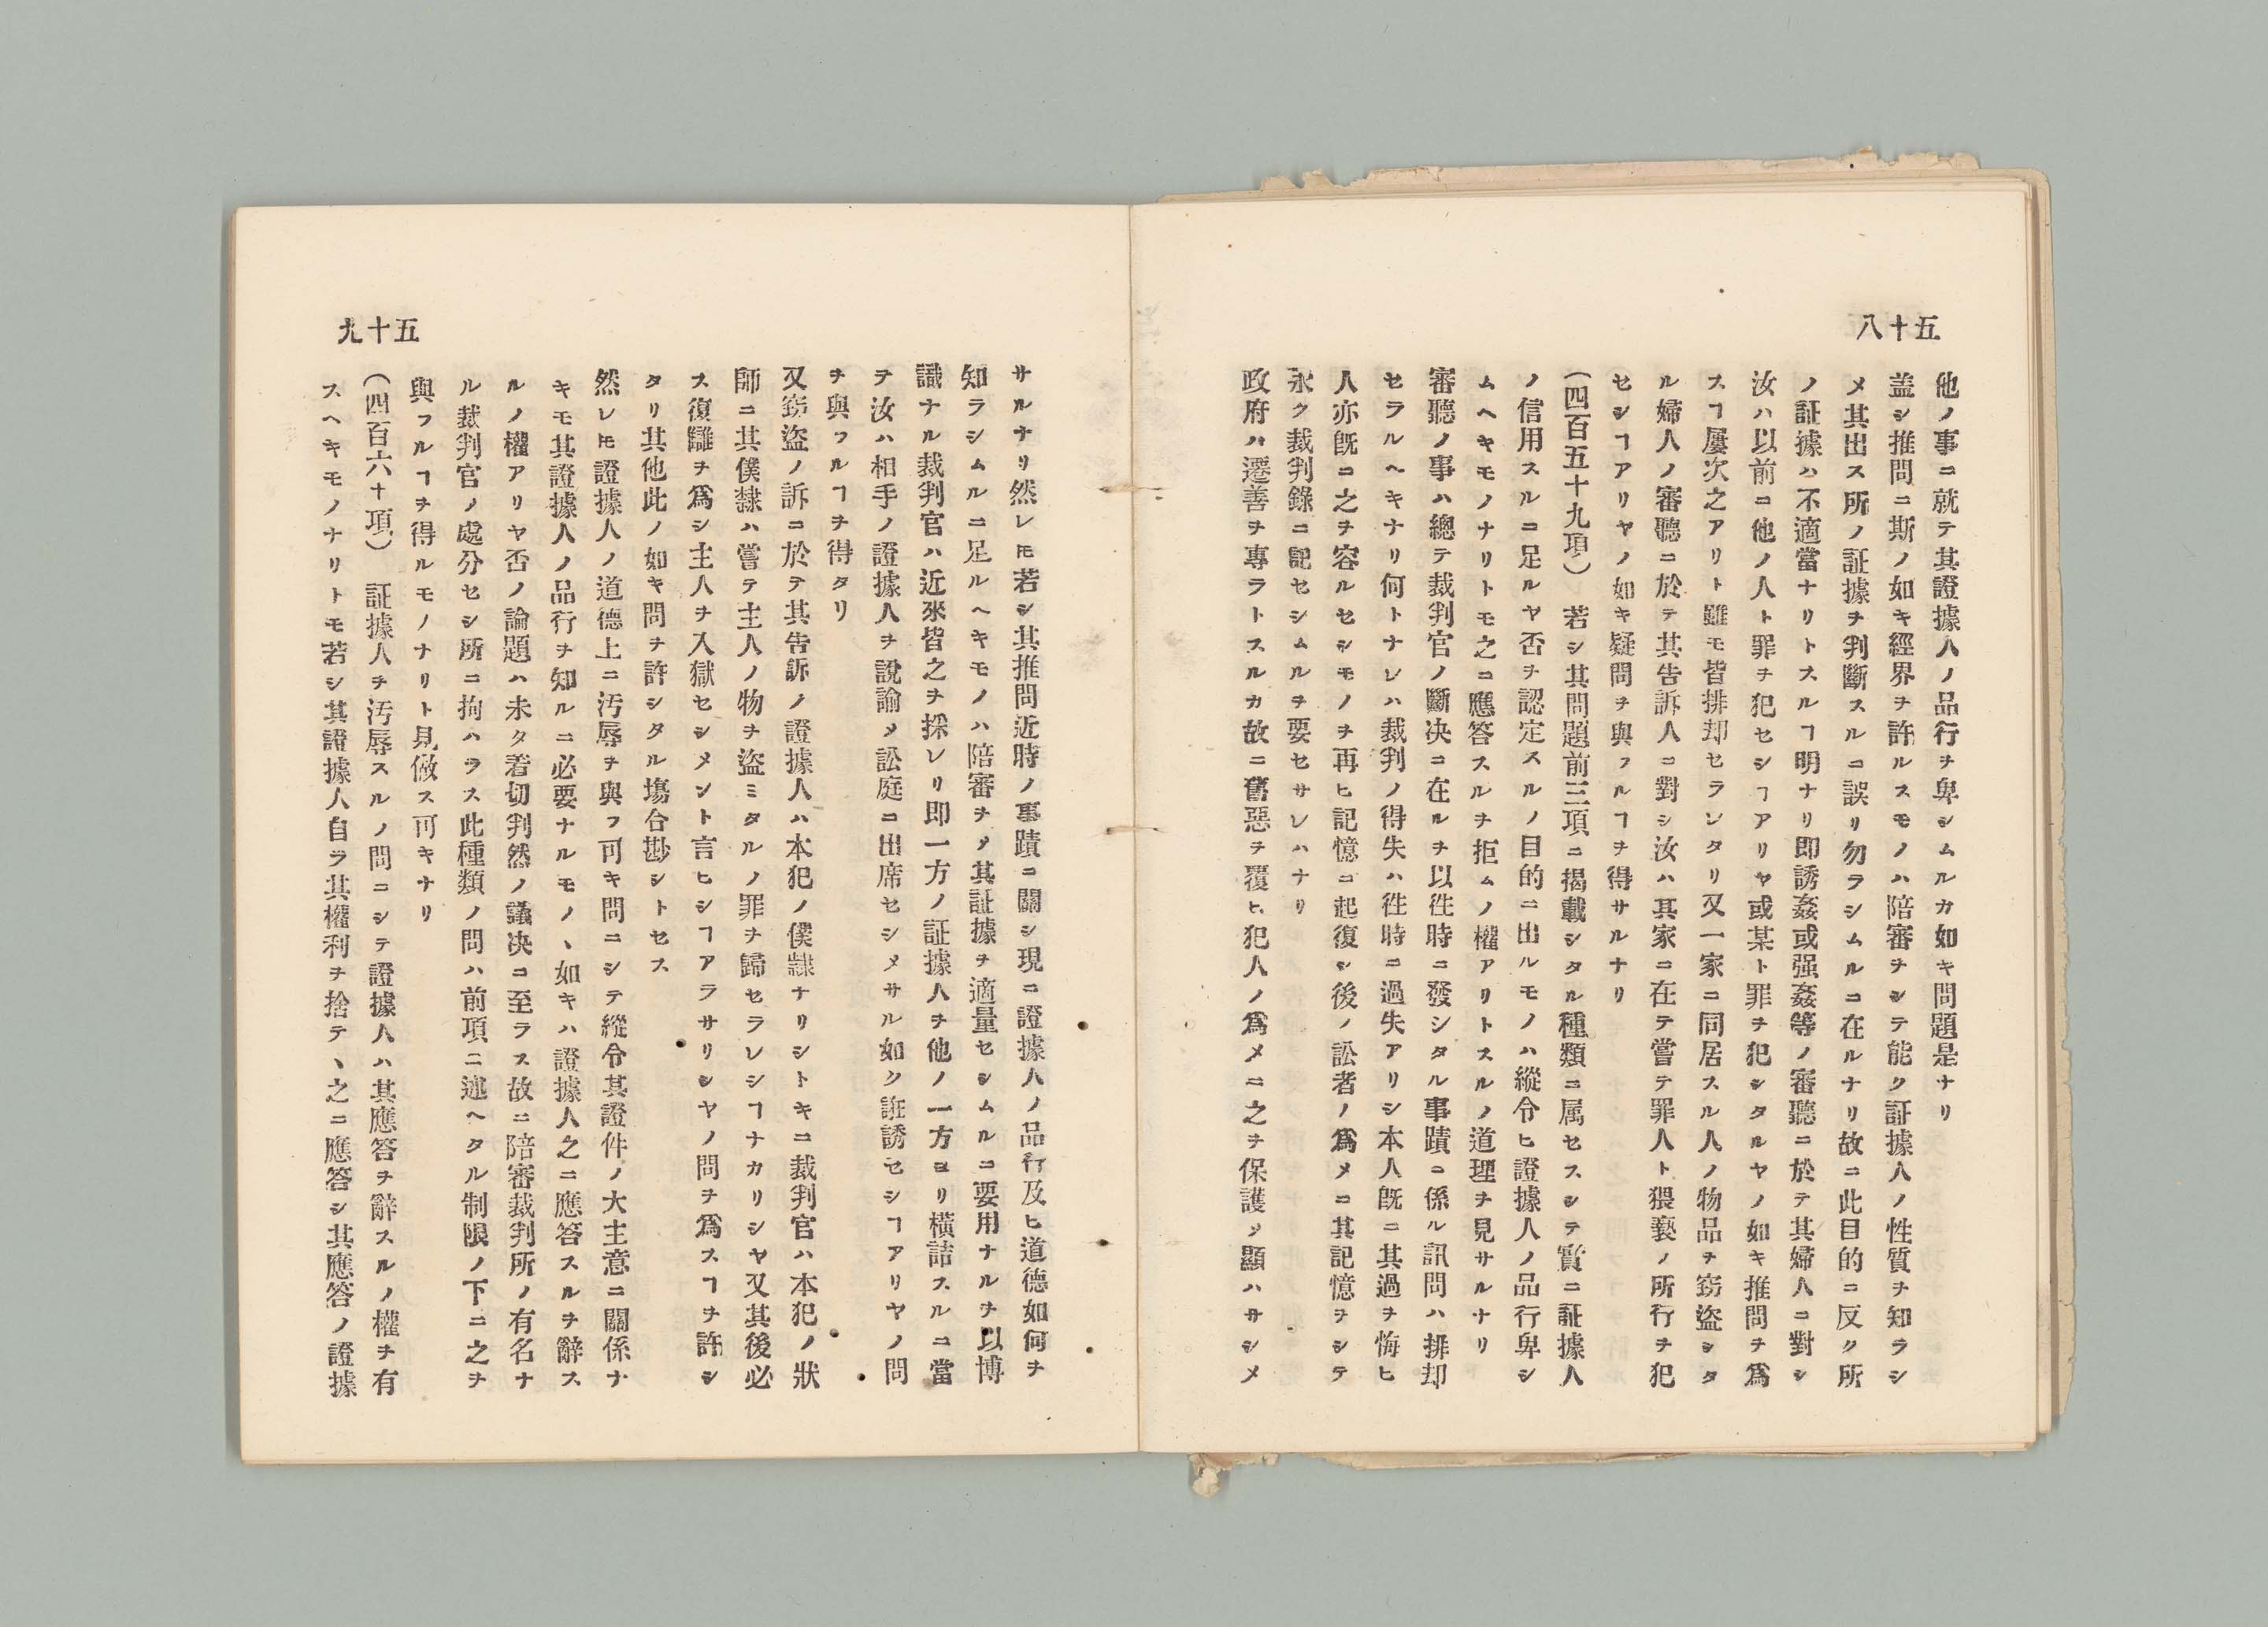 五十八
他ノ事ニ就テ其證據人ノ品行ヲ卑シムルカ如キ問題是ナリ
盖シ推問ニ斯ノ如キ經界ヲ許ルスモノハ陪審ヲシテ能ク証據人ノ性質ヲ知ラシ
メ其出ス所ノ証據ヲ判斷スルニ誤リ勿ラシムルニ在ルナリ故ニ此目的ニ反ク所
ノ証據ハ不適當ナリトスルヿ明ナリ即誘姦或强姦等ノ審聽ニ於テ其婦人ニ對シ
汝ハ以前ニ他ノ人ト罪ヲ犯セシヿアリヤ或某ト罪ヲ犯シタルヤノ如キ推問ヲ爲
スヿ屢次之アリト雖モ皆排却セラレタリ又一家ニ同居スル人ノ物品ヲ窃盜シタ
ル婦人ノ審聽ニ於テ其告訴人ニ對シ汝ハ其家ニ在テ嘗テ罪人ト猥褻ノ所行ヲ犯
セシヿアリヤノ如キ疑問ヲ與フルヿヲ得サルナリ
(四百五十九項) 若シ其問題前三項ニ揭載シタル種類ニ属セスシテ實ニ証據人
ノ信用スルニ足ルヤ否ヲ認定スルノ目的ニ出ルモノハ縱令ヒ證據人ノ品行卑シ
ムヘキモノナリトモ之ニ應答スルヲ拒ムノ權アリトスルノ道理ヲ見サルナリ
審聽ノ事ハ總テ裁判官ノ斷决ニ在ルヲ以徃時ニ發シタル事蹟ニ係ル訊問ハ排却
セラルヘキナリ何トナレハ裁判ノ得失ハ徃時ニ過失アリシ本人既ニ其過ヲ悔ヒ
人亦既ニ之ヲ容ルセシモノヲ再ヒ記憶ニ起復シ後ノ訟者ノ爲メニ其記憶ヲシテ
永ク裁判錄ニ記セシムルヲ要セサレハナリ
政府ハ遷善ヲ專ラトスルカ故ニ舊惡ヲ覆ヒ犯人ノ爲メニ之ヲ保護シ顯ハサシメ
五十九
サルナリ然レㇳモ若シ其推問近時ノ事蹟ニ關シ現ニ證據人ノ品行及ヒ道德如何ヲ
知ラシムルニ足ルヘキモノハ陪審ヲ〆其証據ヲ適量セシムルニ要用ナルヲ以博
識ナル裁判官ハ近來皆之ヲ採レリ即一方ノ証據人ヲ他ノ一方ヨリ橫詰スルニ當
テ汝ハ相手ノ證據人ヲ說諭〆訟庭ニ出席セシメサル如ク誑誘セシヿアリヤノ問
ヲ與フルヿヲ得タリ
又窃盜ノ訴ニ於テ其告訴ノ證據人ハ本犯ノ僕隸ナリシトキニ裁判官ハ本犯ノ狀
師ニ其僕隸ハ嘗テ主人ノ物ヲ盜ミタルノ罪ヲ歸セラレシヿナカリシヤ又其後必
ス復讎ヲ爲シ主人ヲ入獄セシメント言ヒシヿアラサリシヤノ問ヲ爲スヿヲ許シ
タリ其他此ノ如キ問ヲ許シタル塲合尠シトセス
然レㇳモ證據人ノ道德上ニ汚辱ヲ與フ可キ問ニシテ縱令其證件ノ大主意ニ關係ナ
キモ其證據人ノ品行ヲ知ルニ必要ナルモノヽ如キハ證據人之ニ應答スルヲ辭ス
ルノ權アリヤ否ノ論題ハ未タ着切判然ノ議决ニ至ラス故ニ陪審裁判所ノ有名ナ
ル裁判官ノ處分セシ所ニ拘ハラス此種類ノ問ハ前項ニ述ヘタル制限ノ下ニ之ヲ
與フルヿヲ得ルモノナリト見做ス可キナリ
(四百六十項) 証據人ヲ汚辱スルノ問ニシテ證據人ハ其應答ヲ辭スルノ權ヲ有
スヘキモノナリトモ若シ其證據人自ラ其權利ヲ捨テヽ之ニ應答シ其應答ノ證據